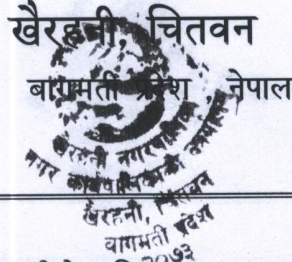 खैरहनी चितवन
बागमती प्रदेश, नेपाल
खैरहनी नगरपालिका
नगर कार्यपालिकाको कार्यालय
खैरहनी, चितवन
बागमती प्रदेश
२०७३